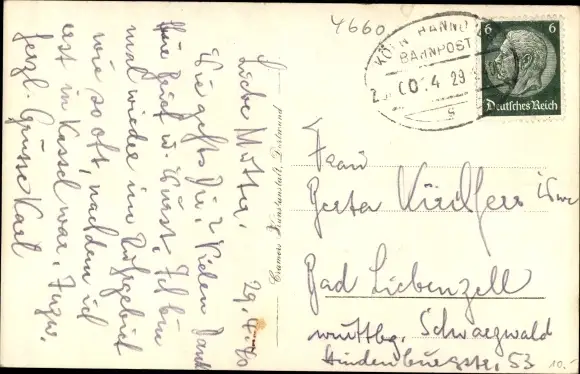 4660
KÖLN HANNO
BAHNPOST
00.4 29
s
6 6
Deutsches Reich
29.4.40
Liebe Mutter.
Wie geht's Dir? Vielen Dank
für Brief u. Wurst. Ich bin
mal wieder im Ruhrgebiet
wie so oft, nachdem ich
erst in Kassel war.
herzl. Grüsse Karl
Cramers Kunstanstalt, Dortmund
Frau
Berta
Bad Liebenzell
württbg. Schwarzwald
Hindenburgstr. 53
10.-